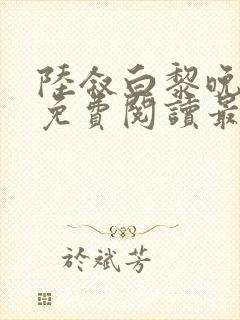 陸敘白黎晚
免費閱讀最
於斌芳